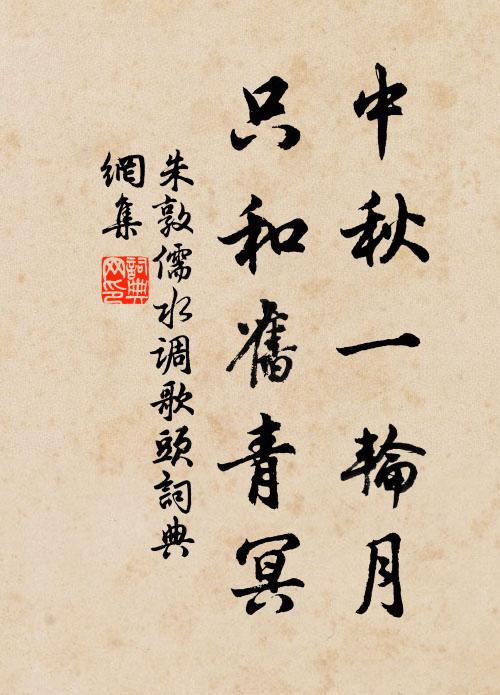 中秋一輪月
只和舊青冥
朱敦儒水调歌頭詞典
網集
詞典網印